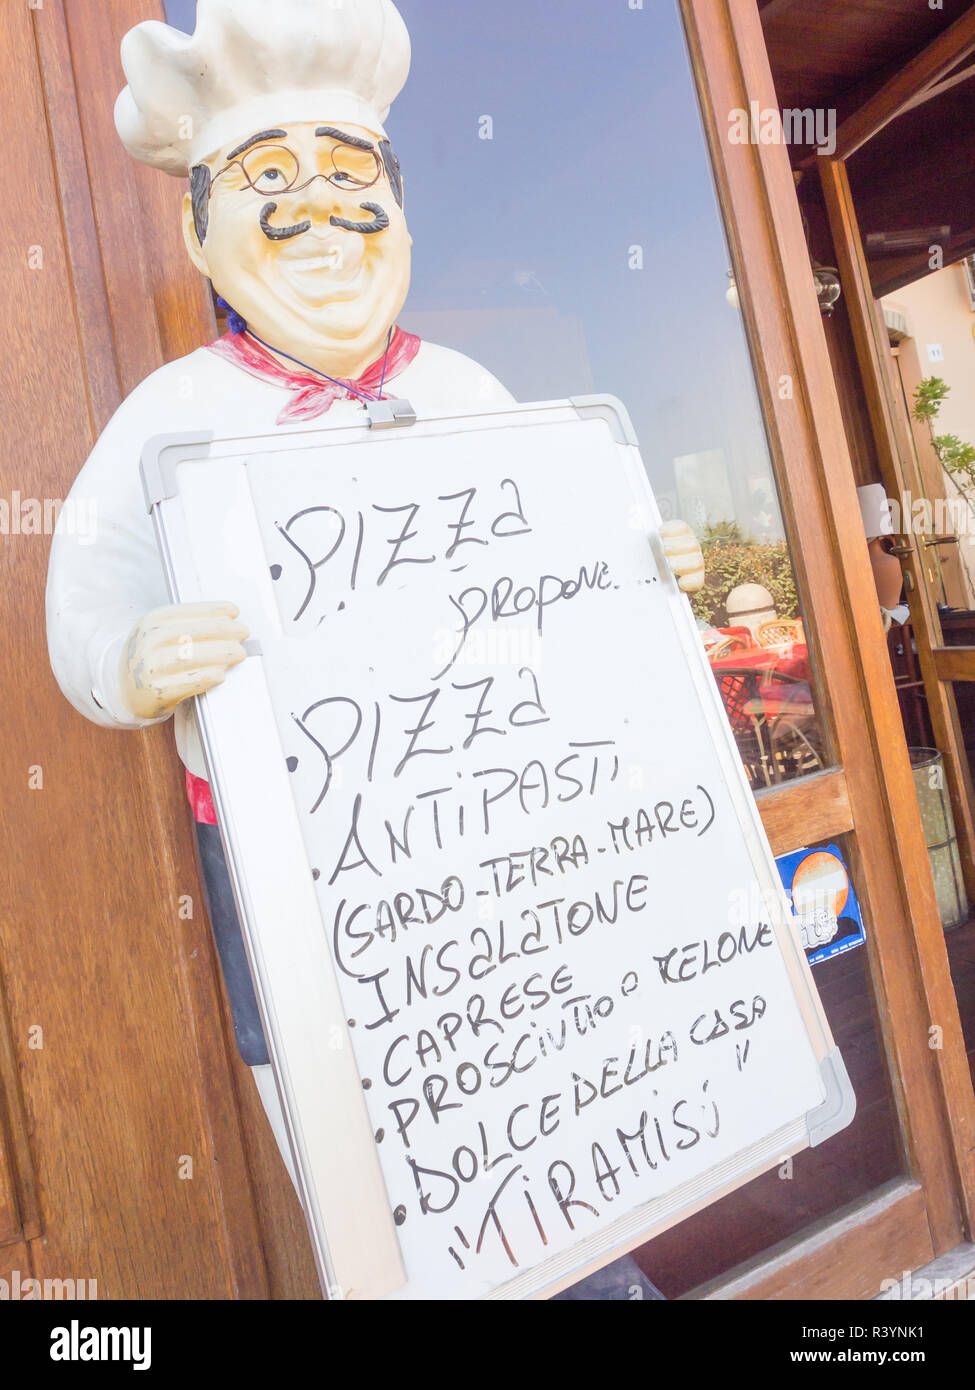 • PIZZa
PROPONE.....
• PIZZa
• ANTIPASTI
(SARDO-TERRA-MARE)
• INSALaTONE
• CAPRESE
• PROSCIUTTO e MELONE
• DOLCE DELLA CASA
"TIRAMISÙ"
11
alamy
Image ID: R3YNK1
www.alamy.com